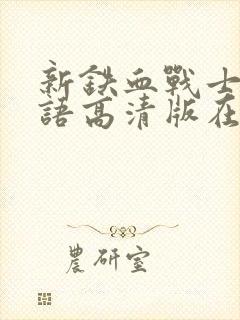 新鉄血戰士
語高清版在
農研室